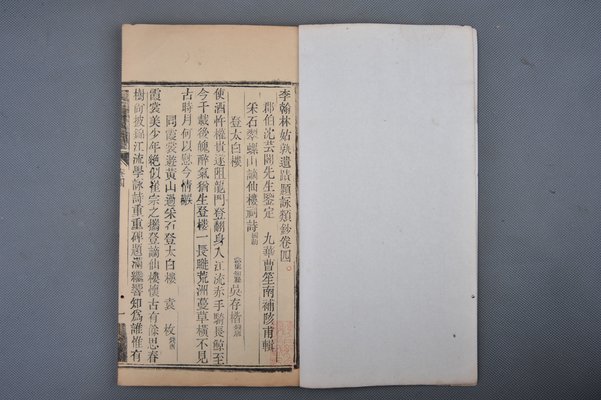 李翰林姑孰遺蹟題詠類鈔卷四
郡伯沈芸閣先生鑒定 九華曹笙南補陔甫輯
采石翠螺山謫仙樓祠詩
登太白樓 吳存楷
使酒忤權貴遂阻龍門登翻身入江流赤手騎長鯨至
今千載後魄醉氣猶生登樓一長嘯荒洲蔓草橫不見
古時月何以慰今情
同霞裳遊黃山過采石登太白樓 袁枚
霞裳美少年絕似崔宗之攜登謫仙樓懷古有餘思春
樹尚披錦江流學詠詩重重碑題滿繼響知為誰惟有
卷四
一